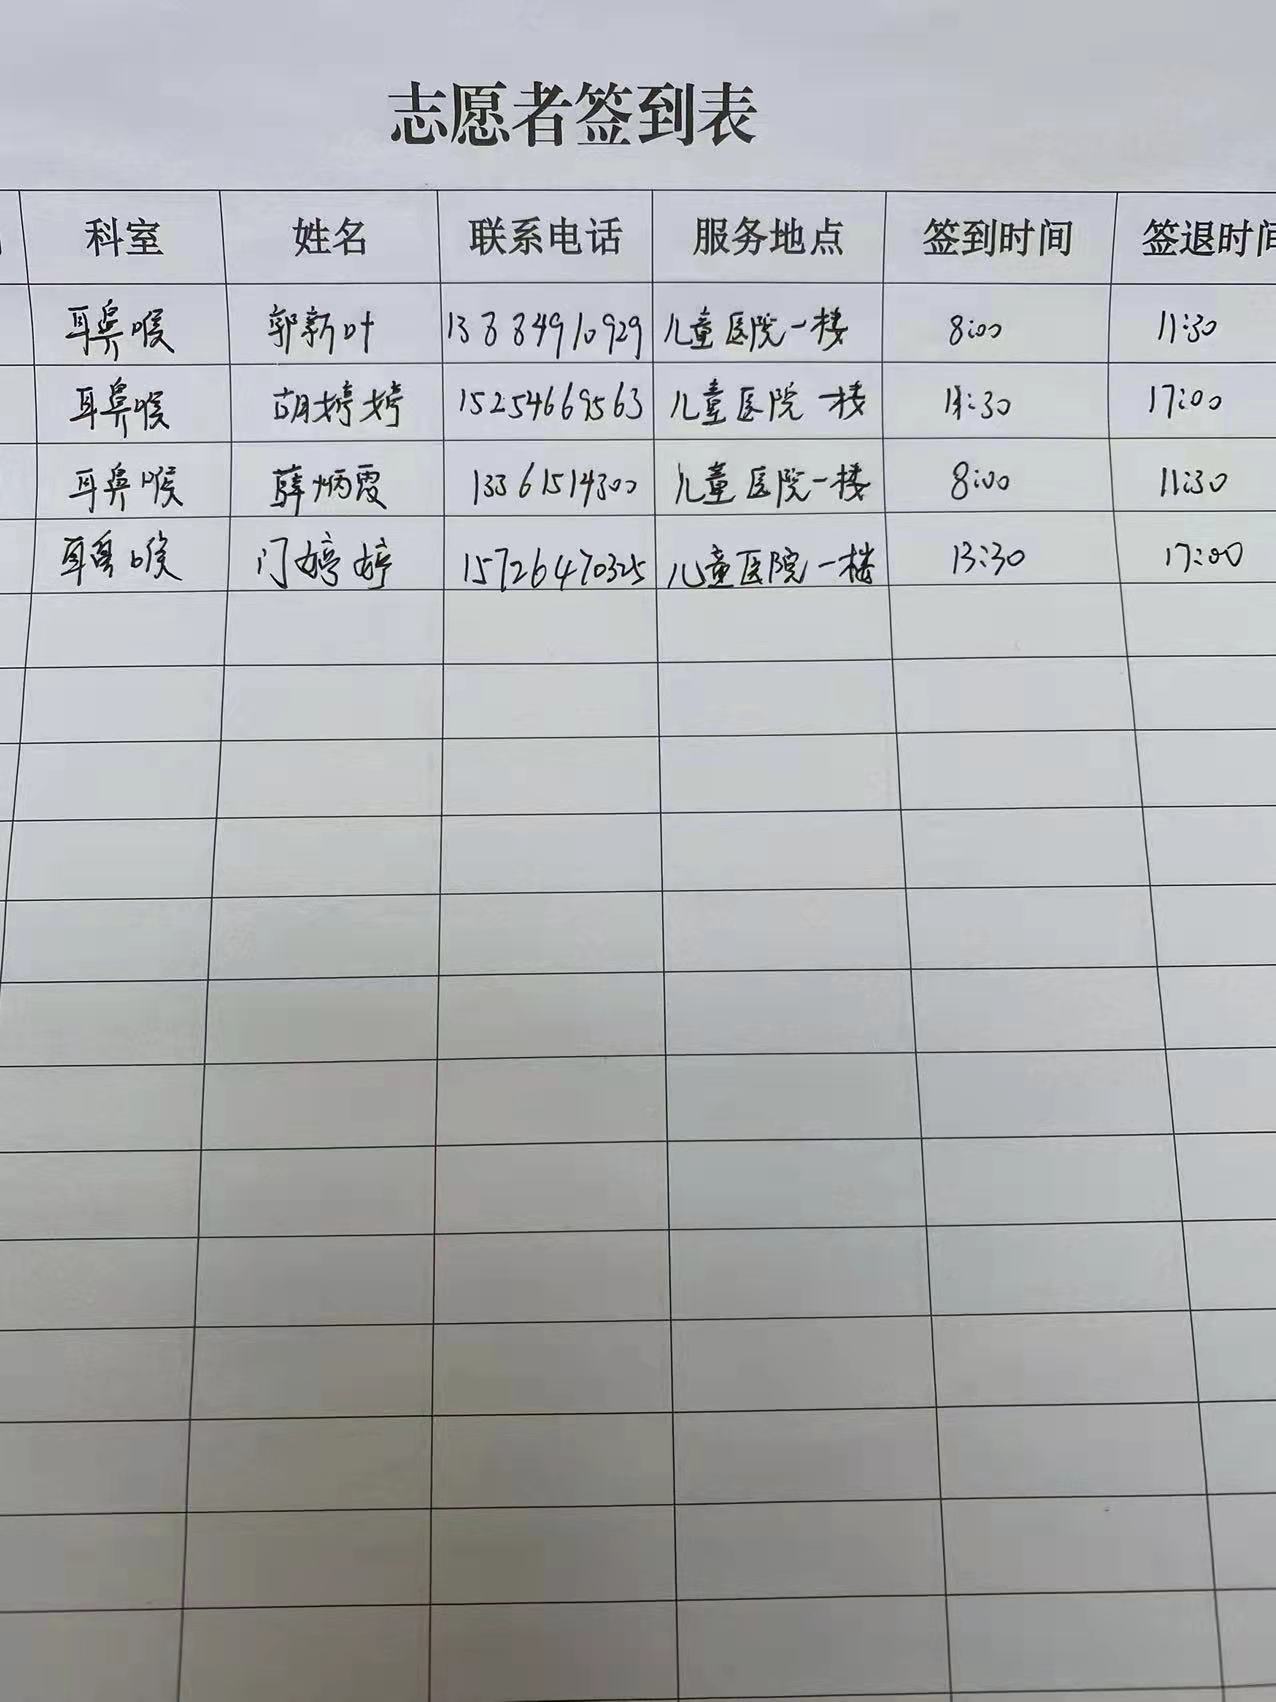 志愿者签到表
科室 姓名 联系电话 服务地点 签到时间 签退时间
耳鼻喉 郭新叶 13884910929 儿童医院一楼 8:00 11:30
耳鼻喉 胡婷婷 15254669563 儿童医院一楼 :30 17:00
耳鼻喉 薛炳霞 13361514300 儿童医院一楼 8:00 11:30
耳鼻喉 门婷婷 15726470325 儿童医院一楼 13:30 17:00